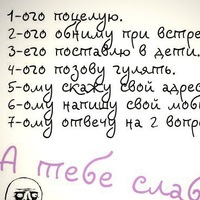 1-ого поцелую.
2-ого обниму при встре
3-его поставлю в дети.
4-ого позову гулять.
5-ому скажу свой адрес
6-ому напишу свой моб
7-ому отвечу на 2 вопр
А тебе слаб